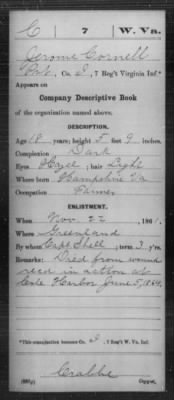 C 7 W. Va.
Jerome Cornell
Pvt., Co. I, 7 Reg't Virginia Inf*
Appears on
Company Descriptive Book
of the organization named above.
DESCRIPTION.
Age 18 years; height 5 feet 9 inches.
Complexion Dark
Eyes Hazel; hair Light
Where born Hampshire Va
Occupation Farmer
ENLISTMENT.
When Nov. 22, 1861.
Where Greenland
By whom Capt Shell; term 3 y'rs.
Remarks: Died from wound
recd in action at
Cole Harbor June 5, 1864.
*This organization became Co. I, 7 Reg't W. Va. Inf.
Crabbe
Copyist.